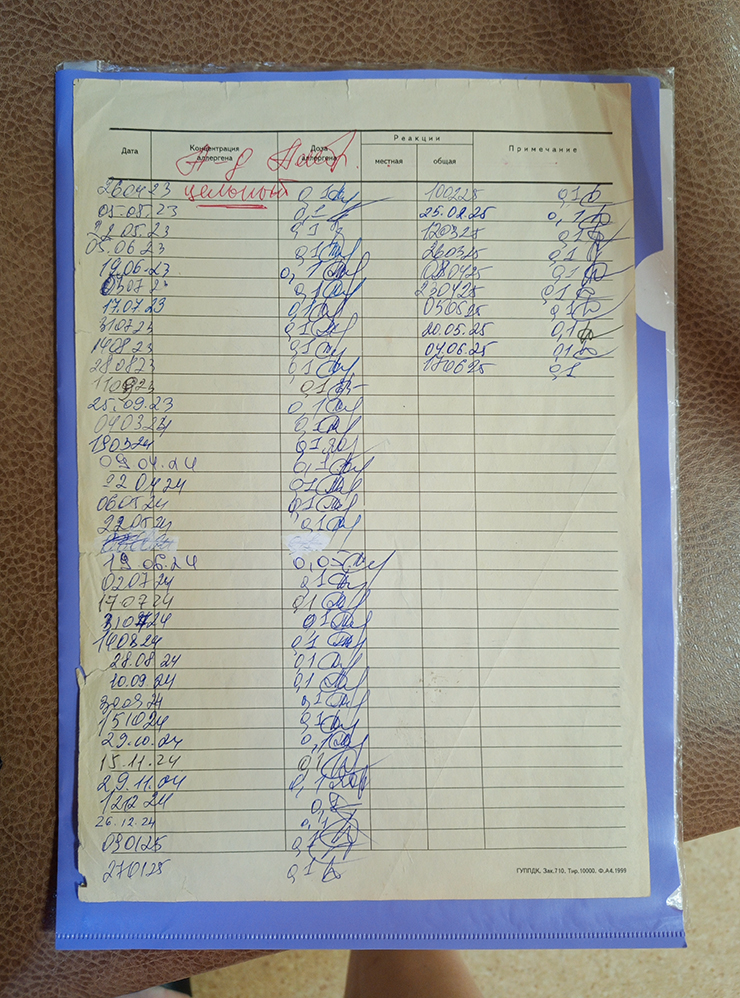 Дата Концентрация аллергена Доза аллергена Реакции Примечание
местная общая
цельный
26 04 23 0,1 10 02 25 0,1
05.05.23 0,1 25.02.25 0,1
22.05.23 0,1 12 03 25 0,1
05.06 23 0,1 26 03 25 0,1
19.06.23 0,1 08 04 25 0,1
03 07 23 0,1 23 04 25 0,1
17.07.23 0,1 05 05 25 0,1
31 07 23 0,1 20.05.25 0,1
14 08 23 0,1 04.06.25 0,1
28 08 23 0,1 17 06 25 0,1
11 09 23 0,1
25.09.23 0,1
04 03 24 0,1
19 03 24 0,1
09 04.24 0,1
22 04 24 0,1
06 05 24 0,1
22 05 24 0,1
19 06.24 0,05
02.07 24 0,1
17 07 24 0,1
31 07 24 0,1
14 08 24 0,1
28.08 24 0,1
10.09.24 0,1
30 09 24 0,1
15 10 24 0,1
29.10.24 0,1
15.11.24 0,1
29.11.04 0,1
12 12 24 0,1
26.12.24 0,1
09 01 25 0,1
27 01 25 0,1
ГУППДК. Зак.710. Тир.10000. Ф.А4.1999